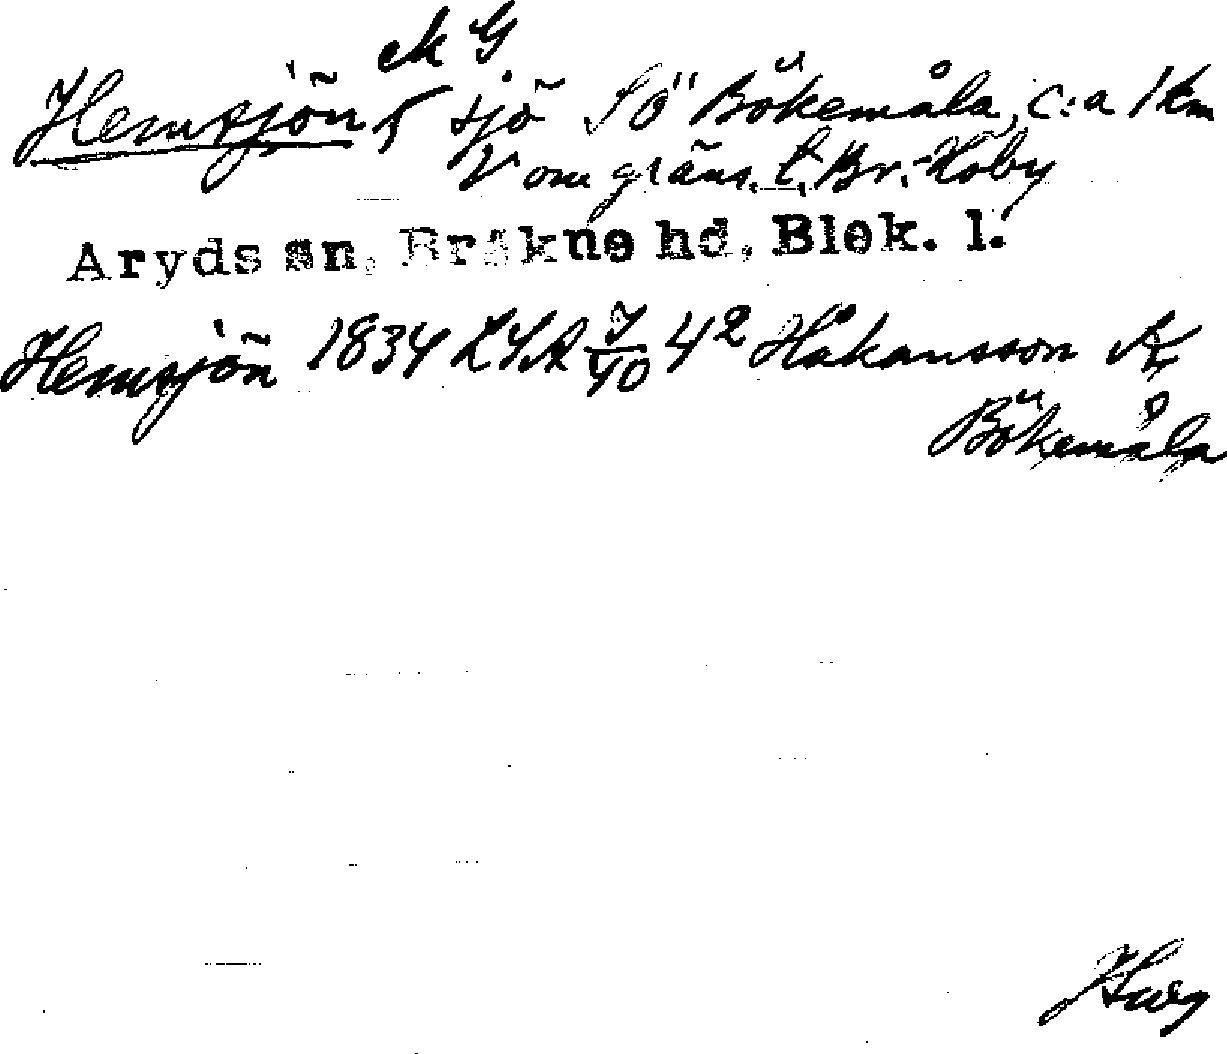 ek G
Hemsjön sjö SÖ Bökemåla, c:a 1 km
V om gräns t. Br.-Hoby
Aryds sn, Bräkne hd, Blek. l.
Hemsjön 1834 LSA 7/40 4² Håkansson K
Bökemåla